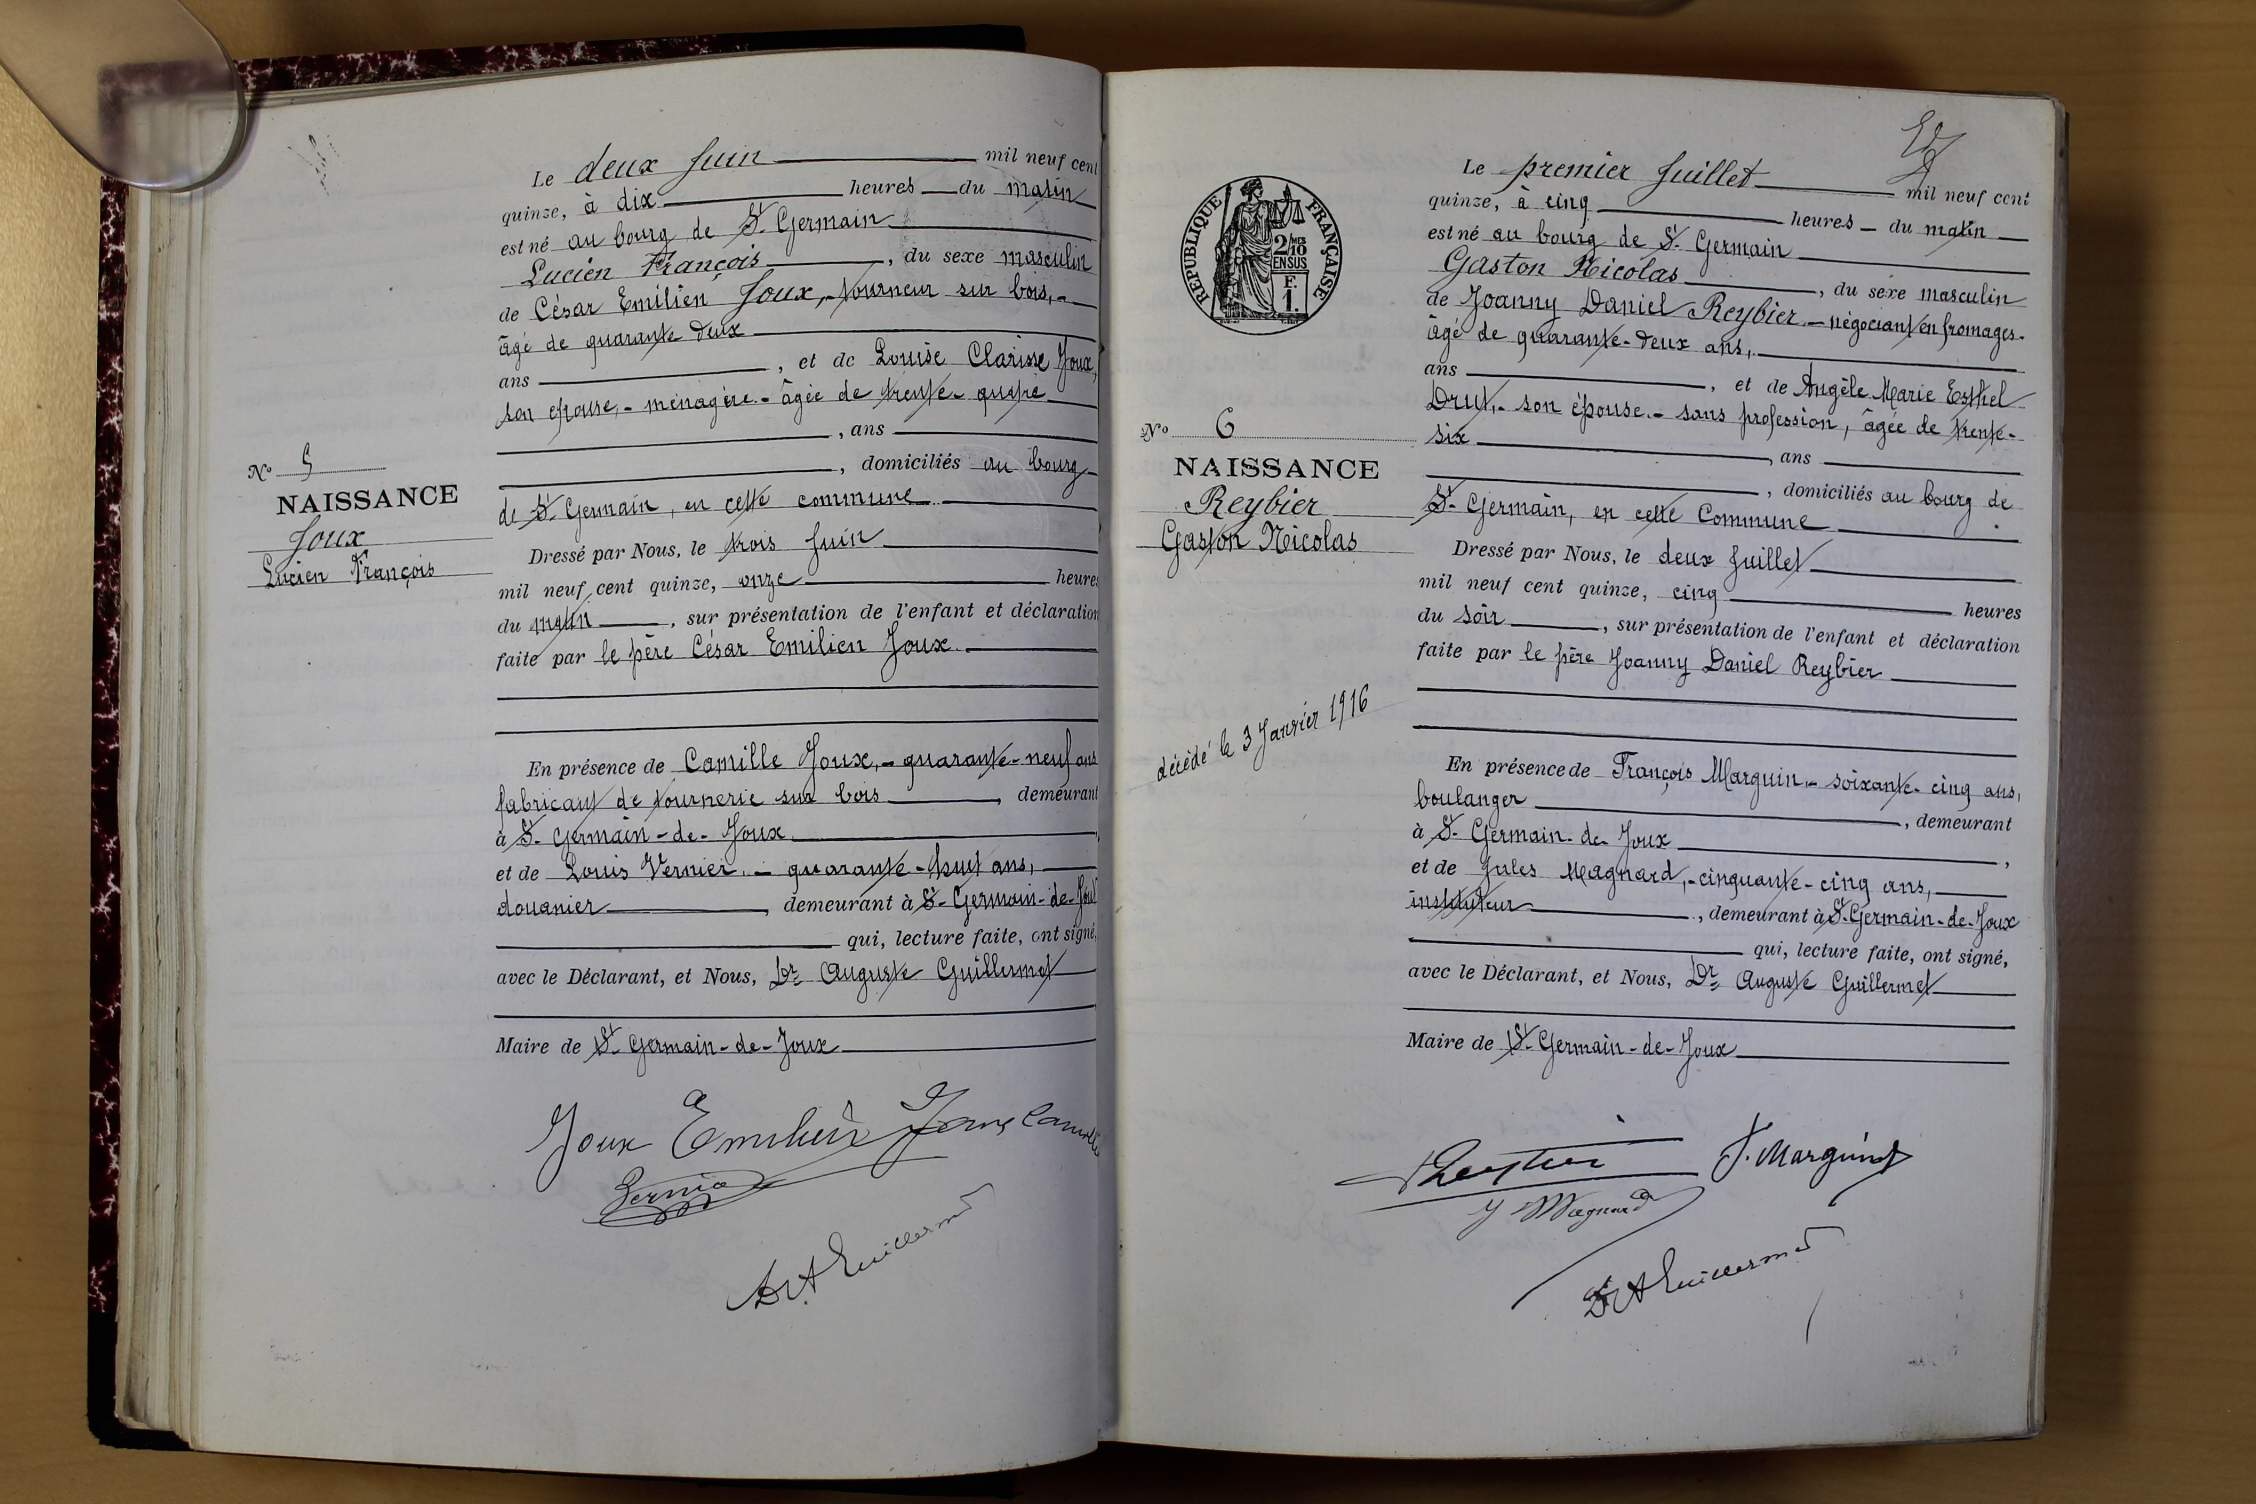 Le deux Juin mil neuf cent
quinze, à dix heures du matin
est né au bourg de St. Germain
Lucien François, du sexe masculin
de César Emilien Joux, - tourneur sur bois, -
âgé de quarante deux
ans, et de Louise Clarisse Joux,
son épouse, - ménagère. - âgée de trente-quatre
, ans
, domiciliés au bourg
de St. Germain, en cette commune
Dressé par Nous, le trois Juin
mil neuf cent quinze, onze heures
du matin, sur présentation de l'enfant et déclaration
faite par le père César Emilien Joux.
En présence de Camille Joux, - quarante-neuf ans
fabricant de tournerie sur bois, demeurant
à St. Germain-de-Joux
et de Louis Vernier. - quarante-huit ans,
douanier, demeurant à St. Germain-de-Joux
qui, lecture faite, ont signé,
avec le Déclarant, et Nous, Dr Auguste Guillermet
Maire de St. Germain-de-Joux
Joux Emilien Joux Camille
Vernier
Dr A Guillermet
No 5
NAISSANCE
Joux
Lucien François
Le premier Juillet mil neuf cent
quinze, à cinq heures - du matin
est né au bourg de St. Germain
Gaston Nicolas, du sexe masculin
de Joanny Daniel Reybier. - négociant en fromages.
âgé de quarante-deux ans,
ans, et de Angèle Marie Esthel
Drut, - son épouse. - sans profession, âgée de trente-
six, ans
, domiciliés au bourg de
St. Germain, en cette Commune
Dressé par Nous, le deux Juillet
mil neuf cent quinze, cinq heures
du soir, sur présentation de l'enfant et déclaration
faite par le père Joanny Daniel Reybier
En présence de François Marguin. - soixante-cinq ans,
boulanger, demeurant
à St. Germain-de-Joux,
et de Jules Magnard, - cinquante-cinq ans,
instituteur, demeurant à St. Germain-de-Joux
qui, lecture faite, ont signé,
avec le Déclarant, et Nous, Dr Auguste Guillermet
Maire de St. Germain-de-Joux
Reybier F. Marguin
J Magnard
Dr A Guillermet
RÉPUBLIQUE FRANÇAISE
2/10 MES
EN SUS
F.
1.
No 6
NAISSANCE
Reybier
Gaston Nicolas
décédé le 3 Janvier 1916